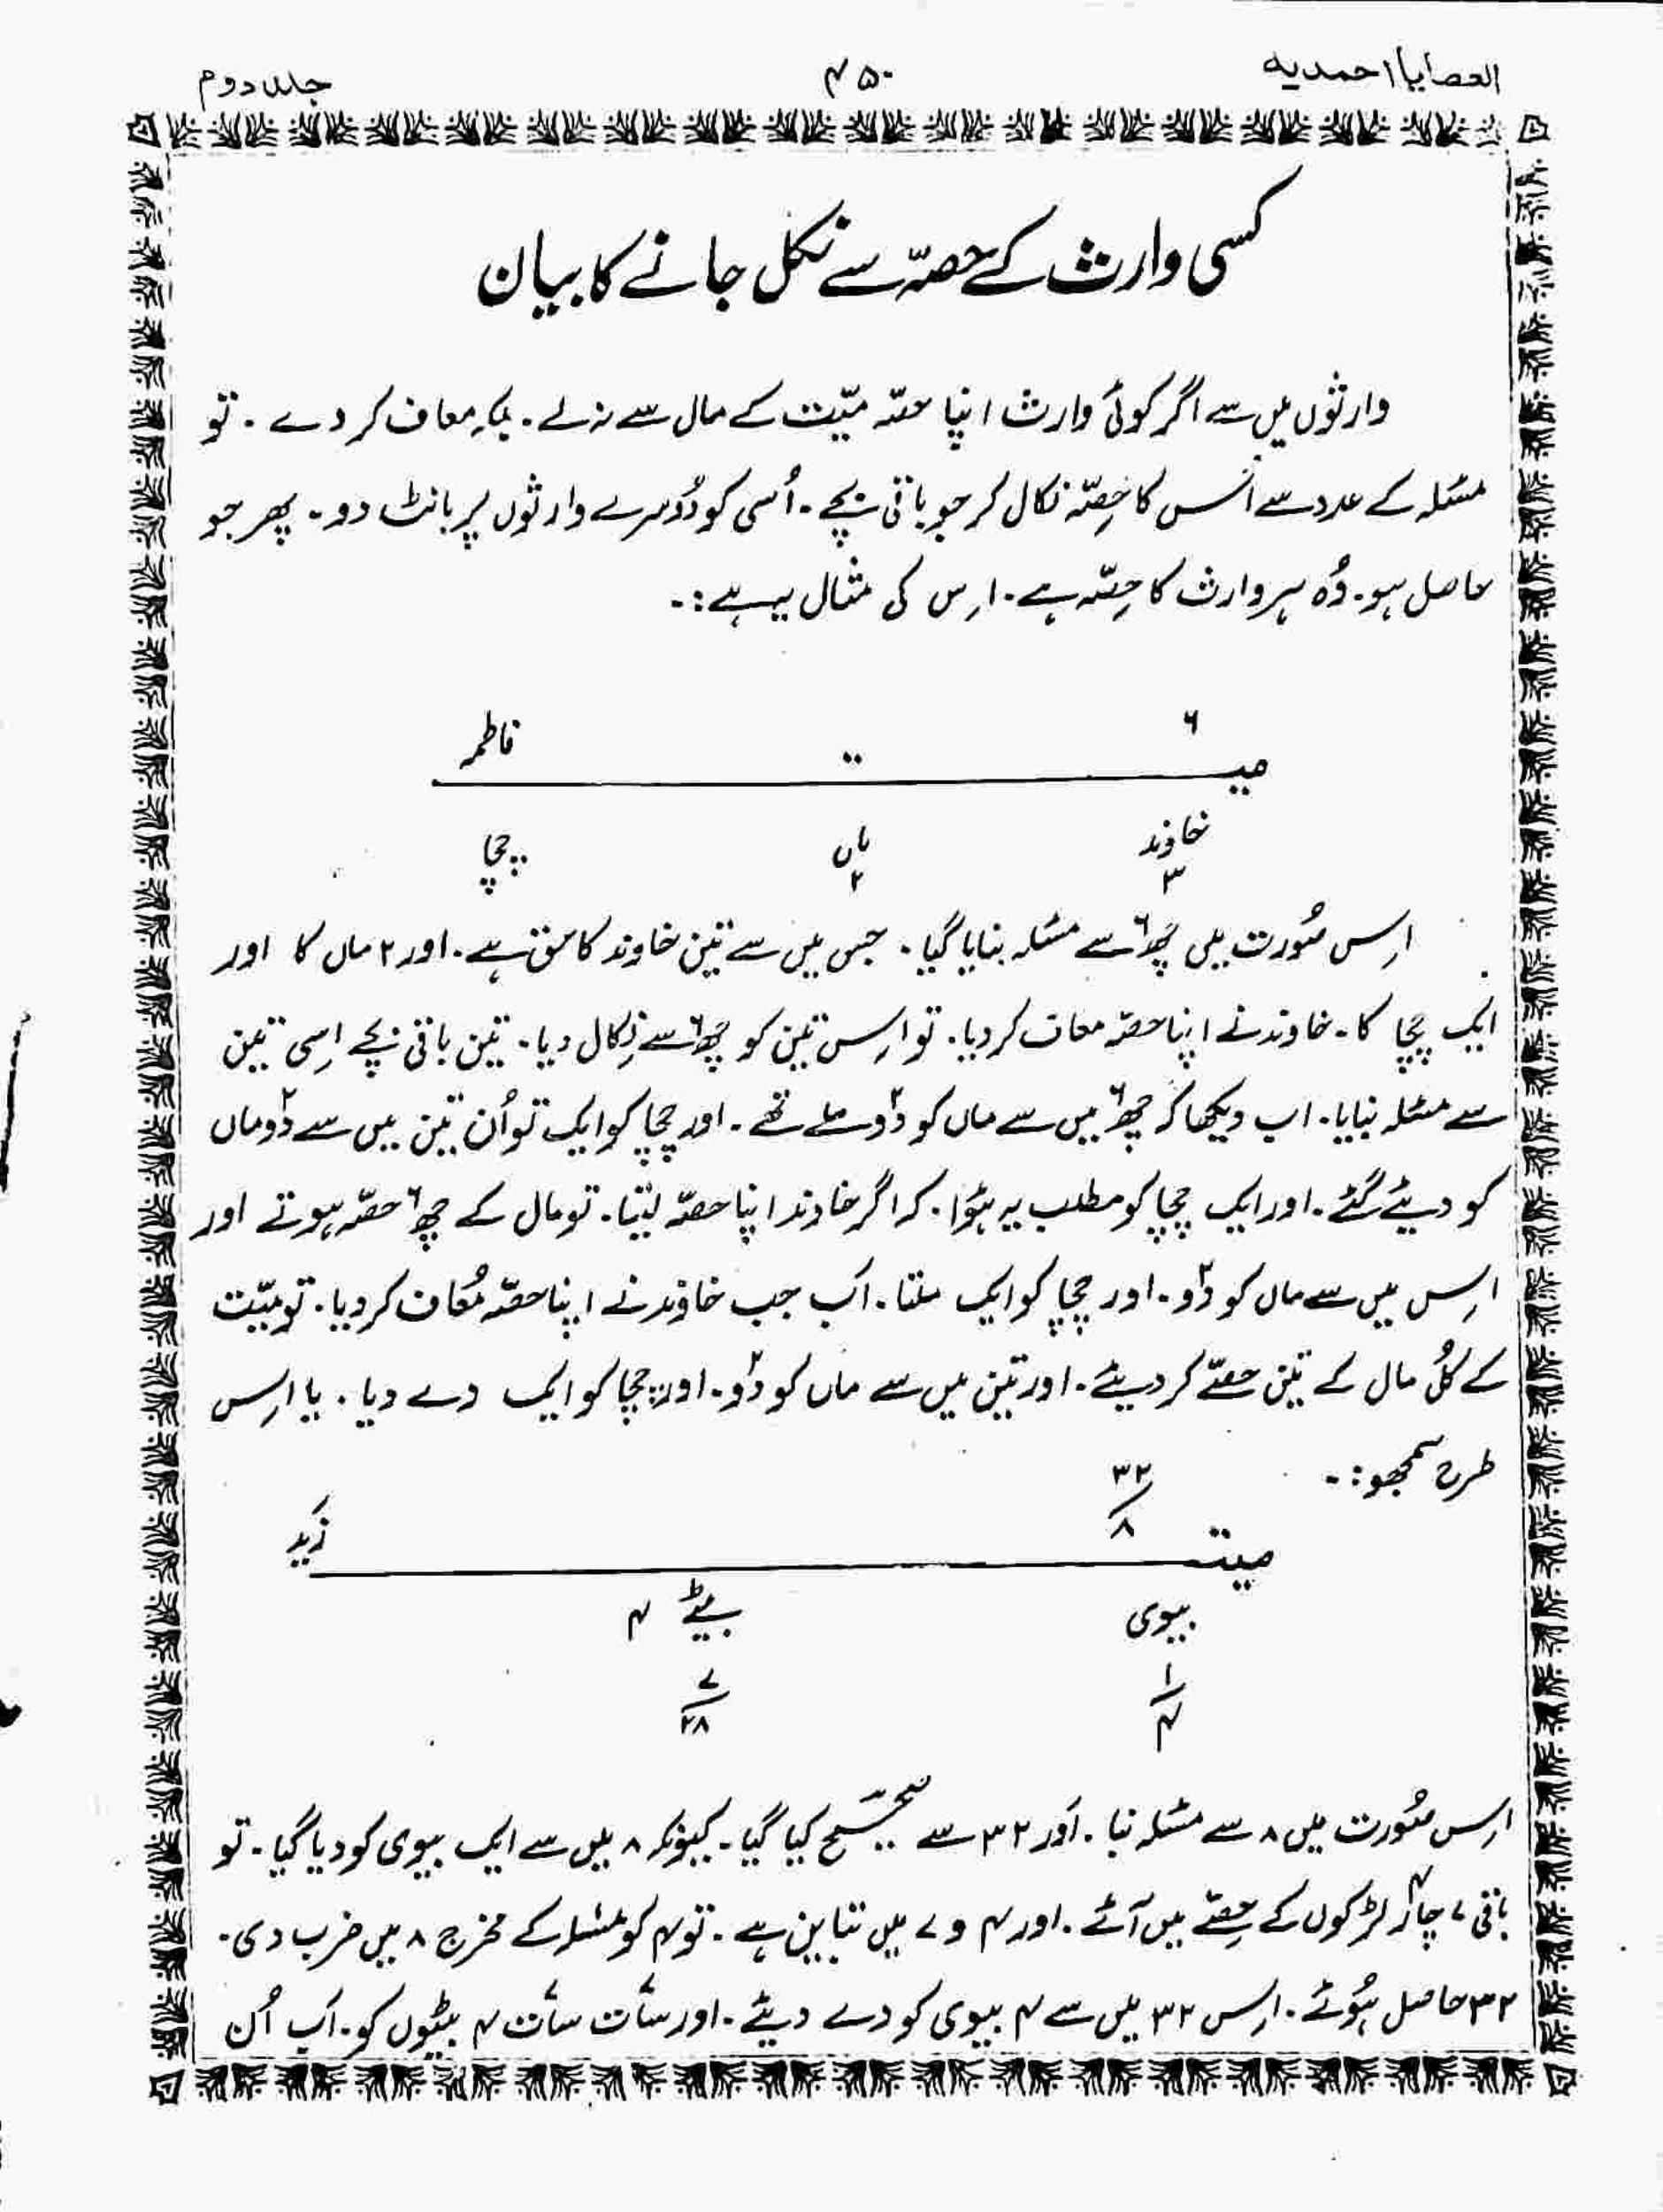 العصایا احمدیہ ۴۵۰ جلد دوم
کسی وارث کے حصہّ سے نکل جانے کا بیان
وارثوں میں سے اگر کوئی وارث اپنا حصّہ میّت کے مال سے نہ لے۔ بلکہ معاف کر دے۔ تو
مسئلہ کے عدد سے اُس کا حِصّہ نکال کر جو باقی بچے۔ اُسی کو دُوسرے وارثوں پر بانٹ دو۔ پھر جو
حاصل ہو۔ وُہ ہر وارث کا حِصّہ ہے۔ اِس کی مثال یہ ہے:۔
۶ فاطمہ
میت
خاوند ماں چچا
۳ ۲
اِس صُورت میں چھ۶ سے مسئلہ بنایا گیا۔ جس میں سے تین خاوند کا حق ہے۔ اور ۲ ماں کا اور
ایک چچا کا۔ خاوند نے اپنا حصّہ معاف کر دیا۔ تو اِس تین کو چھ۶ سے نِکال دیا۔ تین باقی بچے اِسی تین
سے مسئلہ بنایا۔ اب دیکھا کہ چھ۶ میں سے ماں کو دو۲ ملے تھے۔ اور چچا کو ایک تو اُن تین میں سے دو۲ ماں
کو دیئے گئے۔ اور ایک چچا کو مطلب یہ ہُوا۔ کہ اگر خاوند اپنا حصّہ لیتا۔ تو مال کے چھ۶ حصّہ ہوتے اور
اِس میں سے ماں کو دو۲۔ اور چچا کو ایک ملتا۔ اَب جب خاوَند نے اپنا حصّہ مُعاف کر دیا۔ تو میّت
کے کُل مال کے تین حصّے کر دیئے۔ اور تین میں سے ماں کو دو۲۔ اور چچا کو ایک دے دیا۔ یا اِس
طرح سمجھو:۔
۳۲
۸
میت زَید
بیوی بیٹے ۴
۱ ۷
۴ ۲۸
اِس صُورت میں ۸ سے مسئلہ بنا۔ اَور ۳۲ سے صحیح کیا گیا۔ کیونکہ ۸ میں سے ایک بیوی کو دیا گیا۔ تو
باقی ۷ چار۴ لڑکوں کے حِصّے میں آئے۔ اور ۴ و ۷ میں تباین ہے۔ تو ۴ کو مسئلہ کے مخرج ۸ میں ضرب دی۔
۳۲ حاصل ہُوئے۔ اِس ۳۲ میں سے ۴ بیوی کو دے دیئے۔ اور سات۷ سات۷ ۴ بیٹوں کو۔ اَب اُن